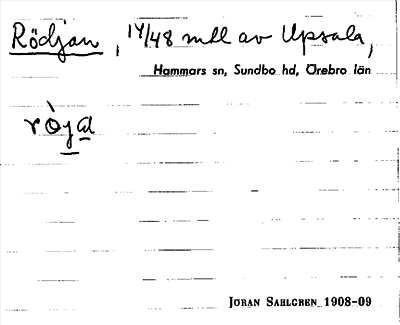 Rödjan, 14/48 mtl av Upsala,
Hammars sn, Sundbo hd, Örebro län
ròja
JÖRAN SAHLGREN 1908-09